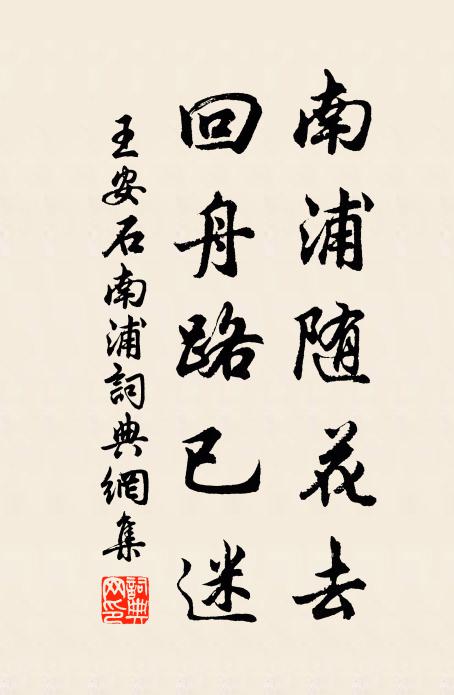 南浦随花去
回舟路已迷
王安石南浦詞典網集
詞典网印